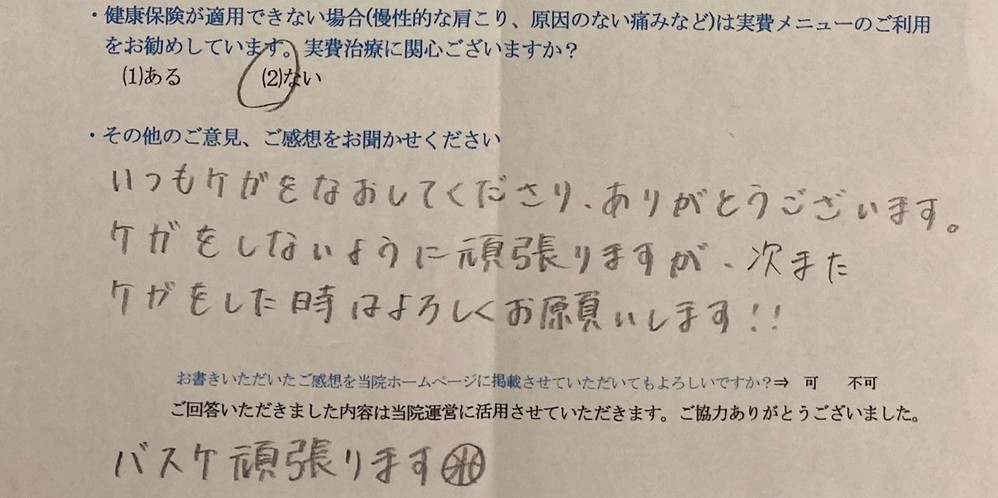 ・健康保険が適用できない場合(慢性的な肩こり、原因のない痛みなど)は実費メニューのご利用
をお勧めしています。実費治療に関心ございますか？
(1)ある　(2)ない
・その他のご意見、ご感想をお聞かせください
いつもケガをなおしてくださり、ありがとうございます。
ケガをしないように頑張りますが、次また
ケガをした時はよろしくお願いします!!
お書きいただいたご感想を当院ホームページに掲載させていただいてもよろしいですか？⇒　可　不可
ご回答いただきました内容は当院運営に活用させていただきます。ご協力ありがとうございました。
バスケ頑張ります